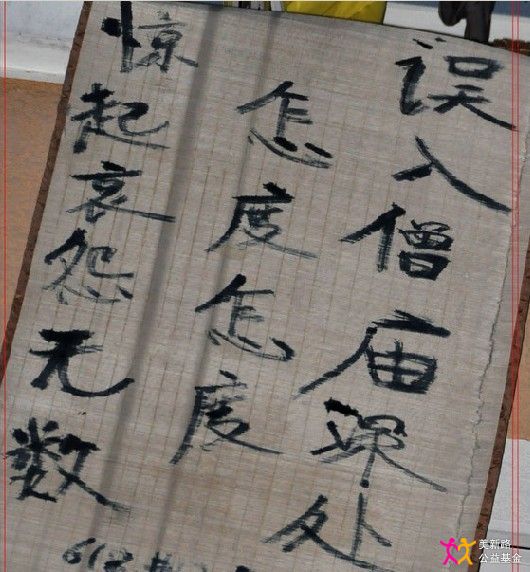 误入僧庙深处
怎度怎度
惊起哀怨无数
618
美新路
公益基金